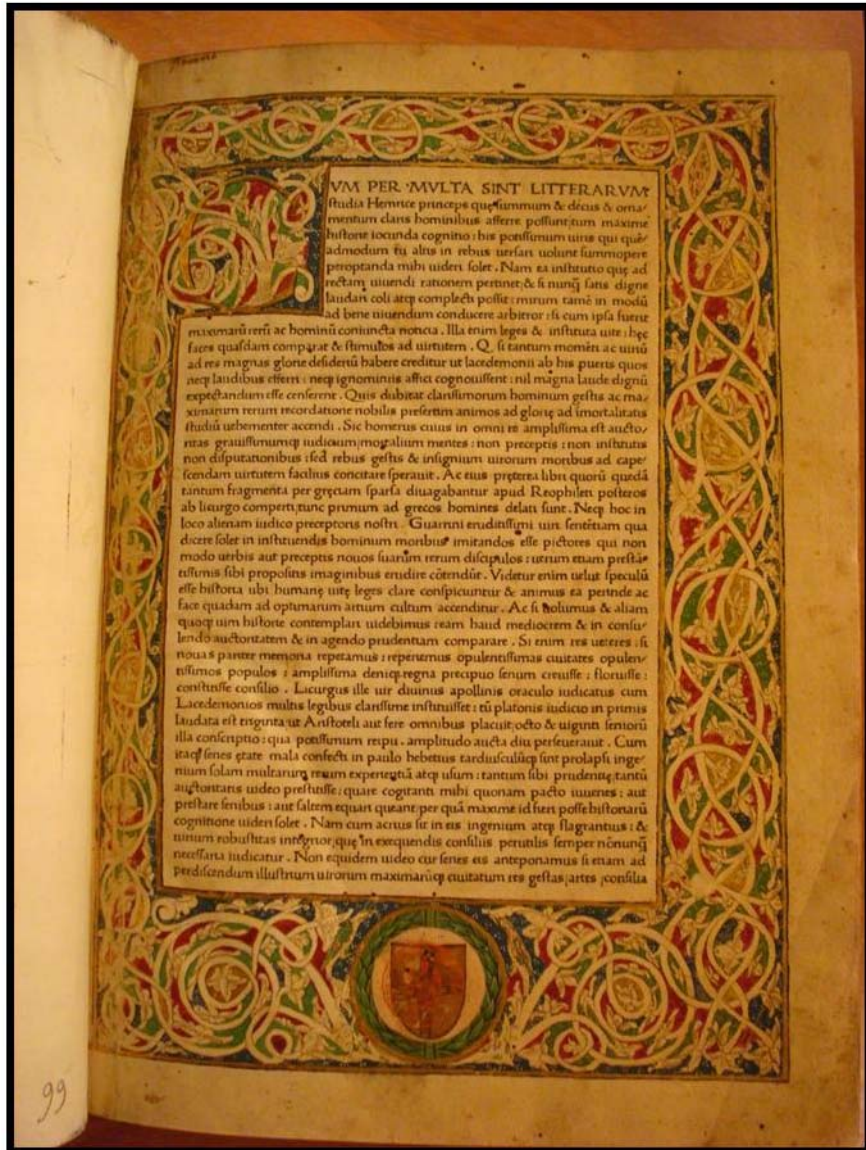 CVM PER MVLTA SINT LITTERARVM
studia Henrice princeps quę summum & decus & orna/
mentum claris hominibus afferre possunt: tum maxime
historie iocunda cognitio: his potissimum uiris qui quē/
admodum tu altis in rebus uersari uolunt summopere
peroptanda mihi uideri solet. Nam ea institutio quę ad
rectam uiuendi rationem pertinet: & si nunq̃ satis digne
laudari coli atq; complecti possit: mirum tamē in modū
ad bene uiuendum conducere arbitror: si cum ipsa fuerit
maximarū rerū ac hominū coniuncta noticia. Illa enim leges & instituta uite: hęc
faces quasdam comparat & stimulos ad uirtutem. Q. si tantum momēti ac uim̄
ad res magnas glorie desideriū habere creditur ut lacedemonii ab his pueris quos
neq; laudibus efferri: neq; ignominiis affici cognouissent: nil magna laude dignū
expectandum esse censerent. Quis dubitat clarissimorum hominum gestis ac ma/
ximarum rerum recordatione nobilis presertim animos ad glorię ad imortalitatis
studiū uehementer accendi. Sic homerus cuius in omni re amplissima est aucto/
ritas grauissimumq; iudicium: mortalium mentes: non preceptis: non institutis
non disputationibus: sed rebus gestis & insignium uirorum moribus ad cape/
scendam uirtutem facilius concitare sperauit. Ac eius pręterea libri quorū quedā
tantum fragmenta per gręciam sparsa diuagabantur apud Reophileti posteros
ab licurgo comperti: tunc primum ad grecos homines delati sunt. Neq; hoc in
loco alienam iudico preceptoris nostri. Guarini eruditissimi uiri sentētiam qua
dicere solet in instituendis hominum moribus imitandos esse pictores qui non
modo uerbis aut preceptis nouos suarum rerum discipulos: uerum etiam prestā/
tissimis sibi propositis imaginibus erudire cōtendūt. Videtur enim uelut speculū
esse historia ubi humanę uitę leges clare conspiciuntur & animus ea perinde ac
face quadam ad optimarum artium cultum accenditur. Ac si uolumus & aliam
quoq; uim historie contemplari uidebimus eam haud mediocrem & in consu/
lendo auctoritatem & in agendo prudentiam comparare. Si enim res ueteres: si
nouas pariter memoria repetamus: reperiemus opulentissimas ciuitates opulen/
tissimos populos: amplissima deniq; regna precipuo senum creuisse: floruisse:
constitisse consilio. Licurgus ille uir diuinus apollinis oraculo iudicatus cum
Lacedemonios multis legibus clarissime instituisset: tū platonis iudicio in primis
laudata est triginta ut Aristoteli aut fere omnibus placuit: octo & uiginti seniorū
illa conscriptio: qua potissimum reipu. amplitudo aucta diu perseuerauit. Cum
itaq; senes ętate mala confecti in paulo hebetius tardiusculūq; sint prolapsi inge/
nium solam multarum rerum experientiā atq; usum: tantum sibi prudentię, tantū
auctoritatis uideo prestitisse: quare cogitanti mihi quonam pacto iuuenes: aut
prestare senibus: aut saltem equari queant: per quā maxime id fieri posse historiarū
cognitione uideri solet. Nam cum acrius sit in eis ingenium atq; flagrantius: &
uirium robustitas integrior, quę in exequendis consiliis perutilis semper nōnunq̃
necessaria iudicatur. Non equidem uideo cur senes eis anteponamus si etiam ad
perdiscendum illustrium uirorum maximarūq; ciuitatum res gestas, artes, consilia
99